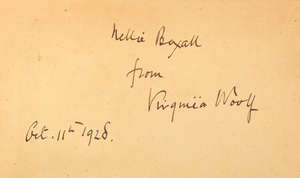 Nellie Boxall
from
Virginia Woolf
Oct. 11th 1928.